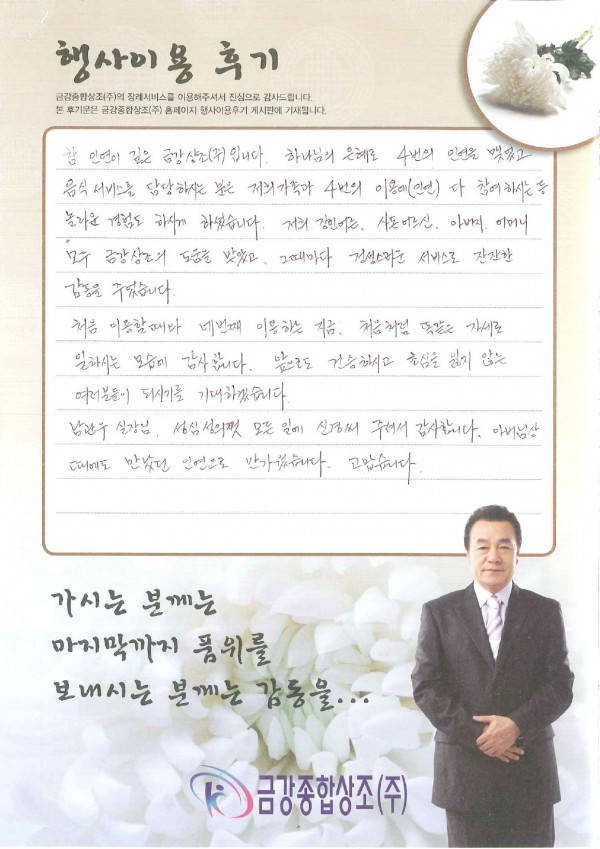 행사이용 후기
금강종합상조(주)의 장례서비스를 이용해주셔서 진심으로 감사드립니다.
본 후기문은 금강종합상조(주) 홈페이지 행사이용후기 게시판에 기재됩니다.
참 인연이 깊은 금강상조(주)입니다. 하나님의 은혜로 4번의 인연을 맺었고
음식 서비스를 담당하시는 분은 저희가족과 4번의 이용에(인연) 다 참여하시는 등
놀라운 경험도 하시게 하셨습니다. 저희 사돈어르신, 아버지, 어머니
모두 금강상조의 도움을 받았고, 그때마다 정성스러운 서비스로 잔잔한
감동을 주었습니다.
처음 이용할때나 네번째 이용하는 지금, 처음처럼 똑같은 자세로
일하시는 모습에 감사합니다. 앞으로도 건승하시고 초심을 잃지 않는
여러분들이 되시기를 기대하겠습니다.
남관우 실장님, 성심성의껏 모든 일에 신경써 주셔서 감사합니다. 아버님상
때에도 만났던 인연으로 반가웠습니다. 고맙습니다.
가시는 분께는
마지막까지 품위를
보내시는 분께는 감동을...
금강종합상조(주)